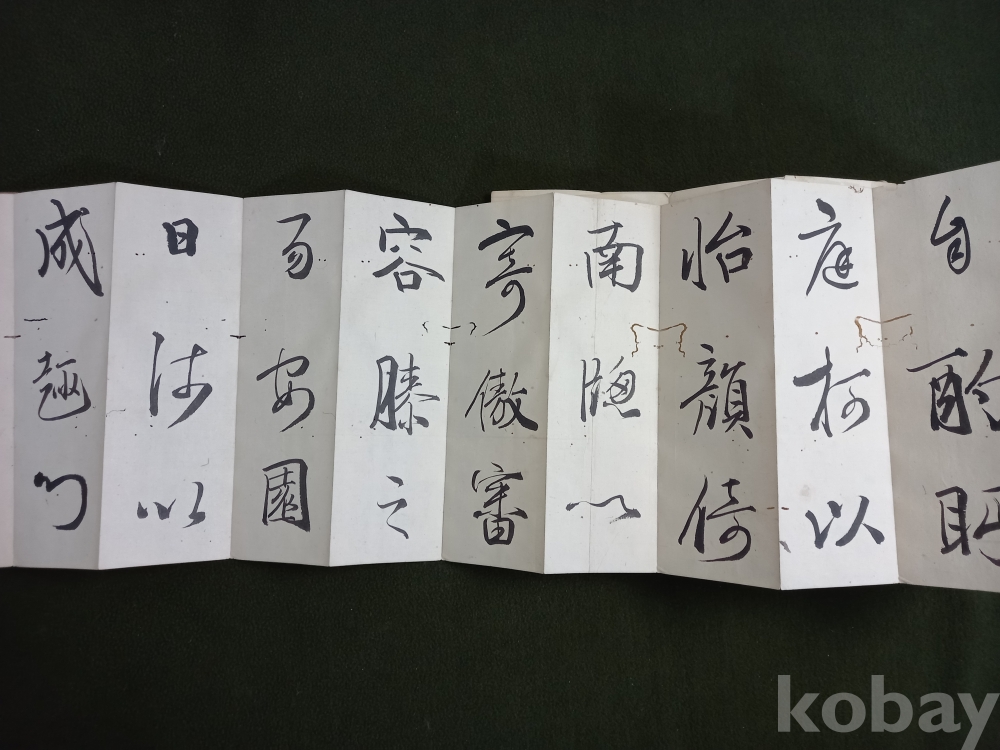 自酌眄
庭柯以
怡顔倚
南牎以
寄傲審
容膝之
易安園
日涉以
成趣門
kobay